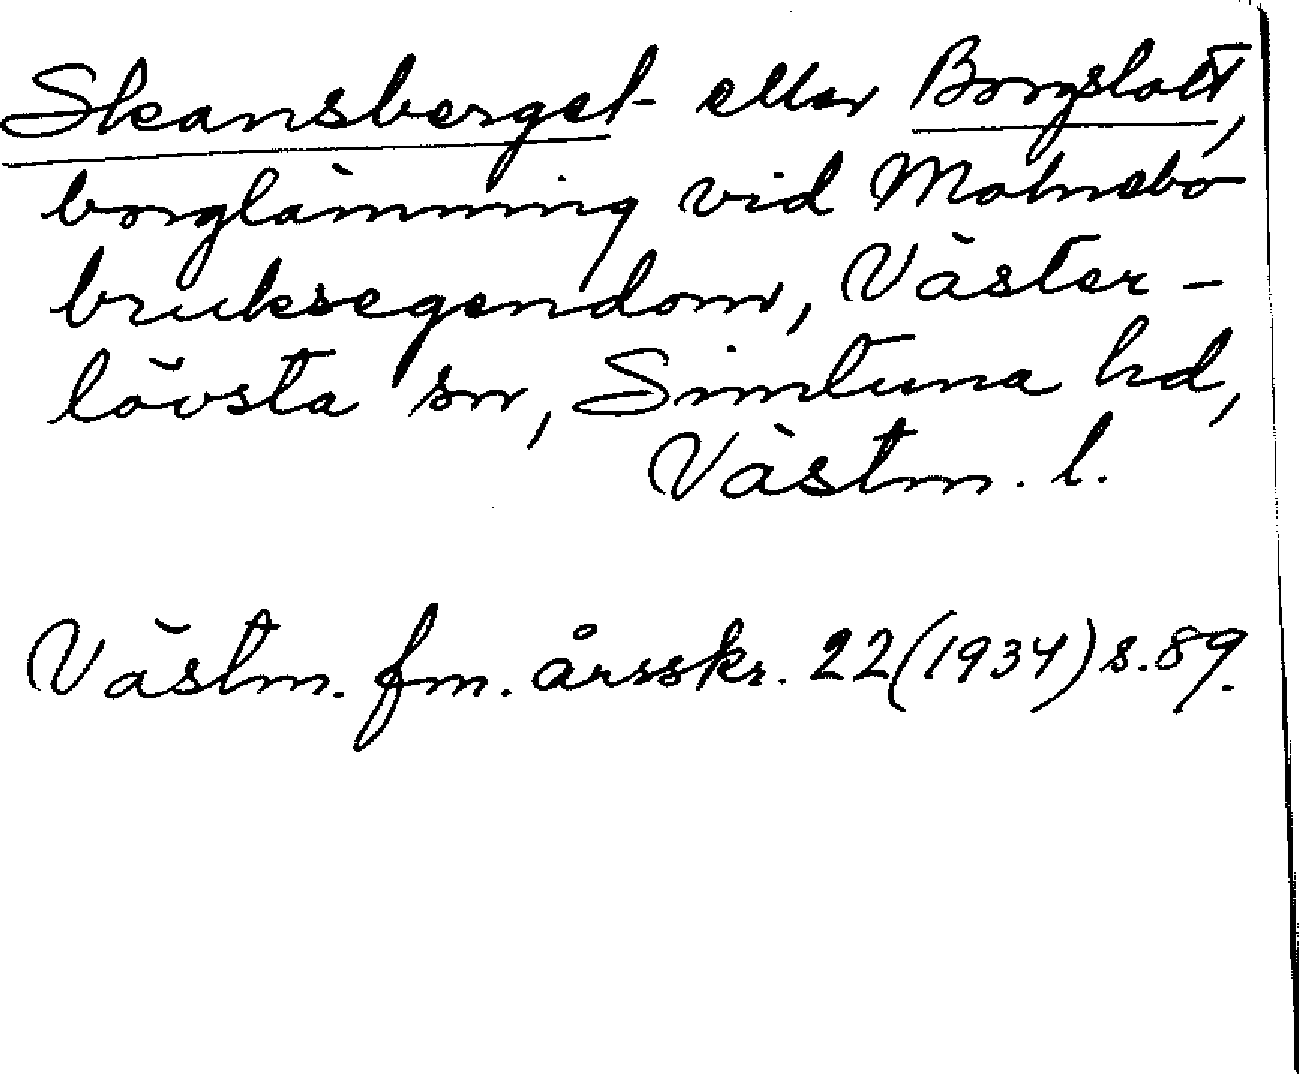 Skansberget eller Borgslott,
borglämning vid Molnebo
bruksegendom, Väster-
lövsta sn, Simtuna hd,
Västm. l.
Västm. fm. årsskr. 22 (1934) s. 89.